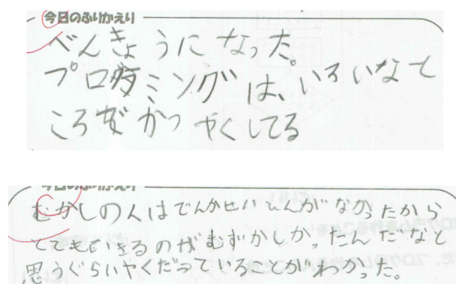 今日のふりかえり
べんきょうになった。
プログラミングは、いろいなと
ころでかつやくしてる
今日のふりかえり
むかしの人はでんかせいひんがなかったから
とてもいきるのがむずかしかったんだなと
思うぐらいやくだっていることがわかった。